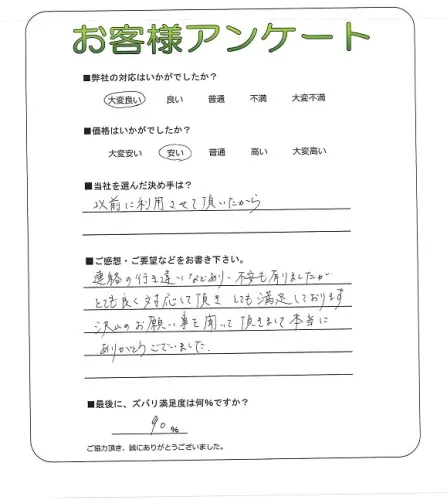 お客様アンケート
■弊社の対応はいかがでしたか?
大変良い 良い 普通 不満 大変不満
■価格はいかがでしたか?
大変安い 安い 普通 高い 大変高い
■当社を選んだ決め手は?
以前に利用させて頂いたから
■ご感想・ご要望などをお書き下さい。
連絡の行き違いなどあり、不安も有りましたが
とても良く対応して頂き とても満足しております
沢山のお願い事を聞いて頂きまして本当に
ありがとうございました.
■最後に、ズバリ満足度は何%ですか?
90%
ご協力頂き、誠にありがとうございました。